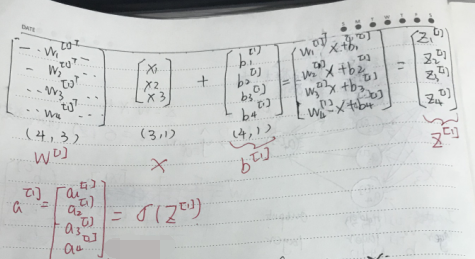 DATE
S M T W T F S
[- - w₁^[1]ᵀ - -; - w₂^[1]ᵀ - -; - - w₃^[1]ᵀ - -; - - w₄^[1]ᵀ - -] [x₁; x₂; x₃] + [b₁^[1]; b₂^[1]; b₃^[1]; b₄^[1]] = [w₁^[1]ᵀ x+b₁^[1]; w₂^[1]ᵀ x+b₂^[1]; w₃^[1]ᵀ x+b₃^[1]; w₄^[1]ᵀ x+b₄^[1]] = [z₁^[1]; z₂^[1]; z₃^[1]; z₄^[1]]
(4, 3) (3,1) (4,1)
W^[1] X b^[1] Z^[1]
a^[1] = [a₁^[1]; a₂^[1]; a₃^[1]; a₄^[1]] = σ(Z^[1])